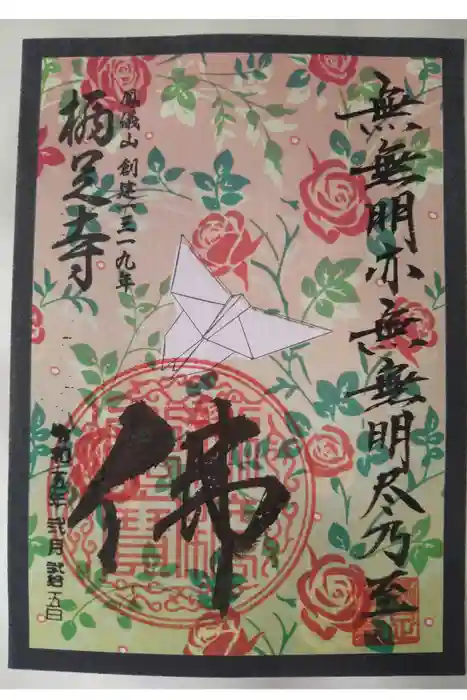 無無明亦無無明尽乃至
佛
鳳儀山 創建一三一九年
足寺
令和五年 弐月 弐拾五日